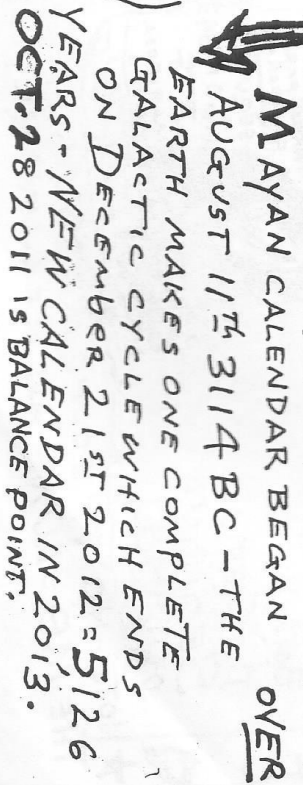 MAYAN CALENDAR BEGAN OVER
AUGUST 11th 3114 BC - THE
EARTH MAKES ONE COMPLETE
GALACTIC CYCLE WHICH ENDS
ON DECEMBER 21ST 2012 = 5,126
YEARS - NEW CALENDAR IN 2013.
OCT. 28 2011 IS BALANCE POINT.